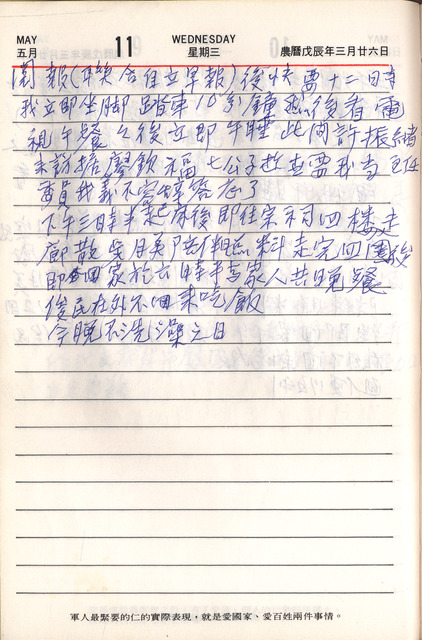 MAY 11 WEDNESDAY
五月 星期三 農曆戊辰年三月廿六日
閱報(聯合自立早報)後快要十二時
我立即坐腳踏車10分鐘然後看電
視午餐之後立即午睡此間許振緒
來訪 七公子 要我當主任
委員我義不容辭答應了
下午三時半起床後即往宗祠四樓走
廊散 走完四圈後
即回家於六時半當家人共晚餐
俊民在外不回來吃飯
今晚不洗澡之日
軍人最緊要的仁的實際表現,就是愛國家、愛百姓兩件事情。